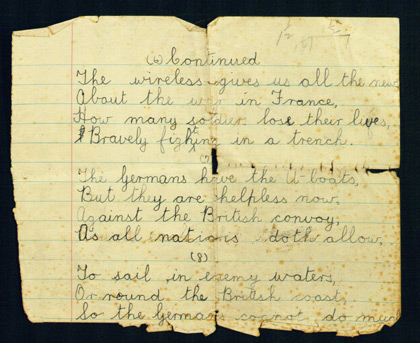 (6) Continued
The wireless gives us all the new
About the war in France,
How many soldier lose their lives,
Bravely fighting in a trench.
(7)
The Germans have the U-boats,
But they are helpless now,
Against the British convoy;
As all nations doth allow,
(8)
To sail in enemy waters,
Or round the British coast,
So the Germans cannot do